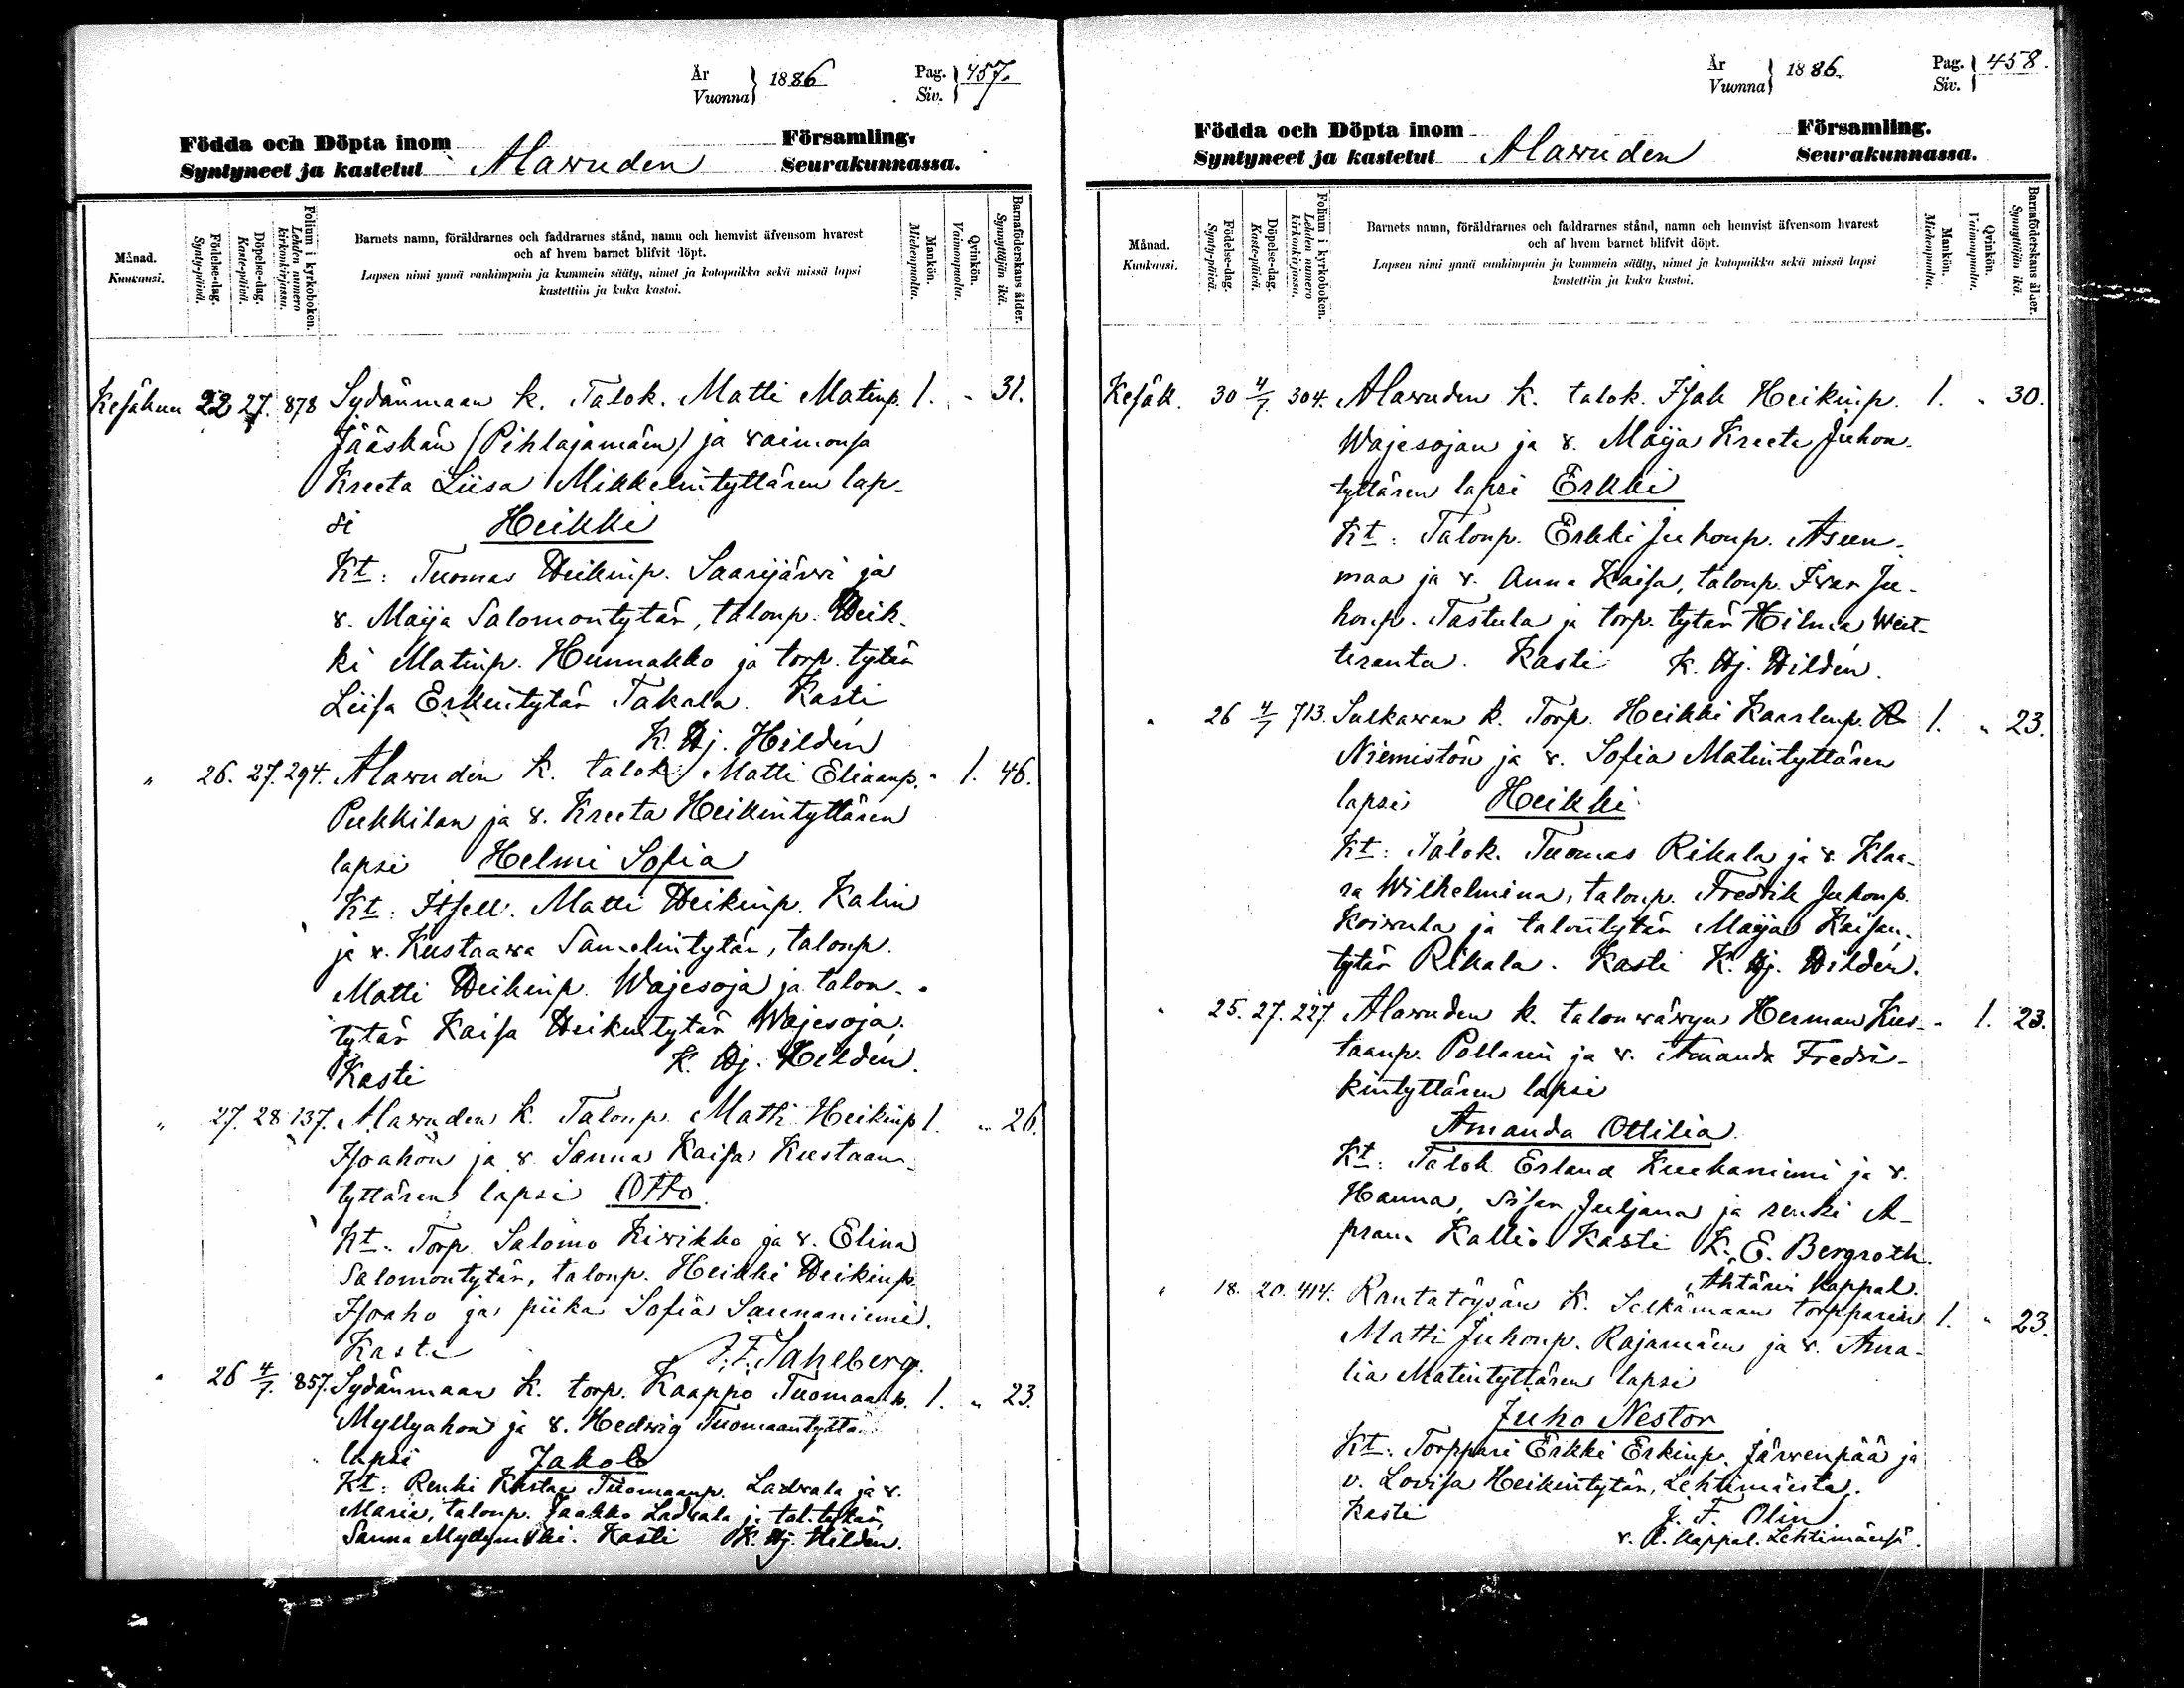 År
Vuonna } 1886 Pag.
Siv. } 457.
Födda och Döpta inom Församling.
Syntyneet ja kastetut Alavuden Seurakunnassa.
Månad.
Kuukausi.
Födelse-dag.
Synty-päivä.
Döpelse-dag.
Kaste-päivä.
Folium i kyrkoboken.
Lehden numero
kirkonkirjassa.
Barnets namn, föräldrarnes och faddrarnes stånd, namn och hemvist äfvensom hvarest
och af hvem barnet blifvit döpt.
Lapsen nimi ynnä vanhimpain ja kummein sääty, nimet ja kotopaikka sekä missä lapsi
kastettiin ja kuka kastoi.
Mankön.
Miehenpuolia.
Qvinkön.
Vaimonpuolia.
Barnaföderskans ålder.
Synnyttäjän ikä.
Kesäkuu 22 27. 878 Sydänmaan k. Talok. Matti Matinp. 1. " 31.
Jääskän (Pihlajamäen) ja vaimonsa
Kreeta Liisa Mikkelintyttären lap-
si Heikki
Kt: Tuomas Heikinp. Saarijärvi ja
v. Maija Salomontytär, talonp. Heik-
ki Matinp. Hunnakko ja torp. tytär
Liisa Erkintytär Takala. Kasti
K. Hj. Hildén
" 26. 27. 294. Alavuden k. talok. Matti Eliaanp. " 1. 46.
Pukkilan ja v. Kreeta Heikintyttären
lapsi Helmi Sofia
Kt: Itsell. Matti Heikinp. Kalin
ja v. Kustaava Samelintytär, talonp.
Matti Heikinp. Wajesoja ja talon-
tytär Kaisa Heikintytär Wajesoja.
Kasti K. Hj. Hildén.
" 27. 28 137. Alavuden k. Talonp. Matti Heikinp 1. " 26.
Isoahon ja v. Sanna Kaisa Kustaan-
tyttären lapsi Otto.
Kt: Torp. Salomo Kivikko ja v. Elina
Salomontytär, talonp. Heikki Heikinp.
Isoaho ja piika Sofia Saunaniemi.
Kasti J. F. Saheberg.
" 26 4/7. 857. Sydänmaan k. torp. Kaappo Tuomaanp. 1. " 23.
Myllyahon ja v. Hedvig Tuomaantyttä
lapsi Jakob
Kt: Renki Kustaa Tuomaanp. Ladvala ja v.
Maria, talonp. Jaakko Ladvala ja tal. tytär
Sanna Myllymäki. Kasti K. Hj. Hildén.
År
Vuonna } 1886. Pag.
Siv. } 458.
Födda och Döpta inom Församling.
Syntyneet ja kastetut Alavuden Seurakunnassa.
Månad.
Kuukausi.
Födelse-dag.
Synty-päivä.
Döpelse-dag.
Kaste-päivä.
Folium i kyrkoboken.
Lehden numero
kirkonkirjassa.
Barnets namn, föräldrarnes och faddrarnes stånd, namn och hemvist äfvensom hvarest
och af hvem barnet blifvit döpt.
Lapsen nimi ynnä vanhimpain ja kummein sääty, nimet ja kotopaikka sekä missä lapsi
kastettiin ja kuka kastoi.
Mankön.
Miehenpuolia.
Qvinkön.
Vaimonpuolia.
Barnaföderskans ålder.
Synnyttäjän ikä.
Kesäk. 30 4/7. 304. Alavuden k. talok. Isak Heikinp. 1. " 30.
Wajesojan ja v. Maija Kreeta Juhon-
tyttären lapsi Erkki
Kt: Talonp. Erkki Juhonp. Asun-
maa ja v. Anna Kaisa, talonp. Ivar Ju-
honp. Tastula ja torp. tytär Hilma West-
eranta. Kasti K. Hj. Hildén.
" 26 4/7 713. Sulkavan k. Torp. Heikki Kaarlenp. 1. " 23.
Niemistön ja v. Sofia Matintyttären
lapsi Heikki
Kt: Talok. Tuomas Rikala ja v. Klaa-
ra Wilhelmina, talonp. Fredrik Juhonp.
Koivula ja talontytär Maija Kaisan-
tytär Rikala. Kasti K. Hj. Hildén.
" 25. 27. 227. Alavuden k. talonvävyn Herman Kus- " 1. 23.
taanp. Pollarin ja v. Amanda Fredri-
kintyttären lapsi
Amanda Ottilia.
Kt: Talok. Erland Kuukaniemi ja v.
Hanna, sisar Juljana ja renki A-
pram Kallio Kasti K. E. Bergroth.
Ahtärin Kappal.
" 18. 20. 414. Rantatöysän k. Selkämaan torpparin 1. " 23.
Matti Juhonp. Rajamäen ja v. Ama-
lia Matintyttären lapsi
Juho Nestor
Kt: Torppari Erkki Erkinp. Järvenpää ja
v. Lovisa Heikintytär, Lehtimäeltä.
Kasti J. F. Olin
v. t. Kappal. Lehtimäellä.